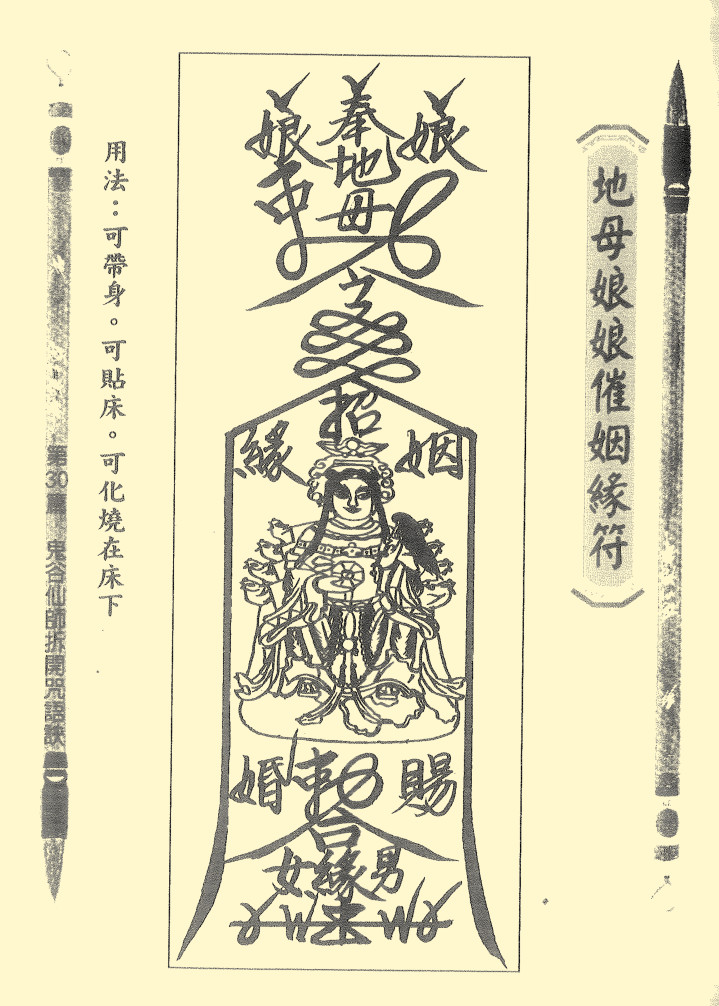 地母娘娘催姻緣符
娘 奉地母 娘
招
姻 緣
賜 勅 婚
合
男 緣 女
用法：可帶身。可貼床。可化燒在床下
第30篇 鬼谷仙師拆開咒語訣